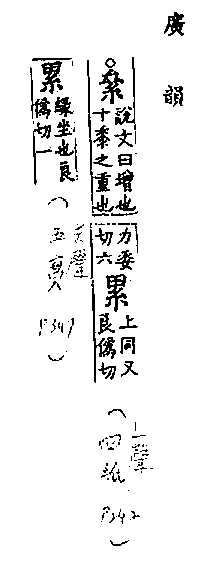 廣韻
○絫說文曰增也十黍之重也力委切六累上同又良僞切(上聲四紙P242)
累緣坐也良僞切一(去聲五寘P347)